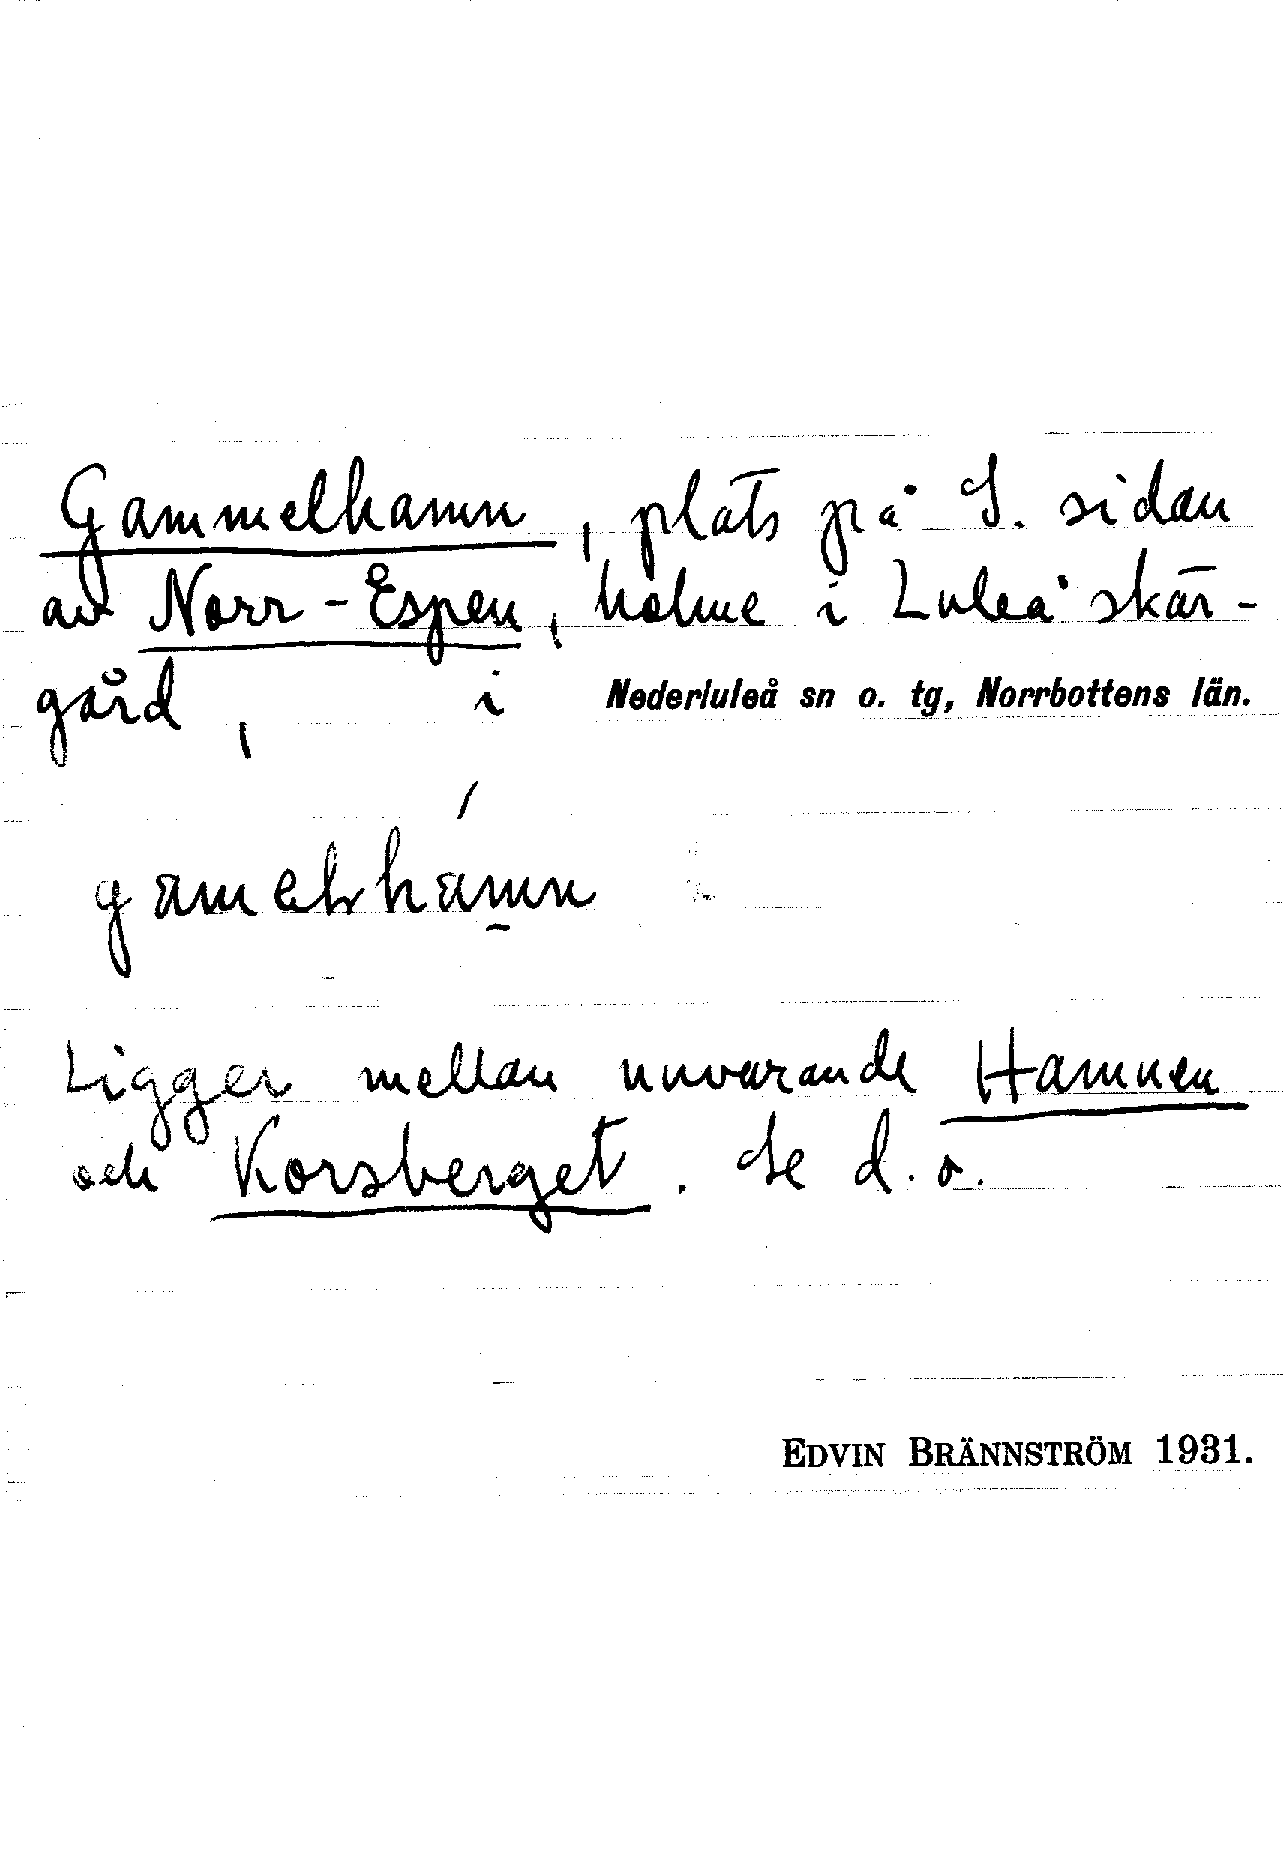 Gammelhamn, plats på S. sidan
av Norr-Espen, holme i Luleå skär-
gård, i Nederluleå sn o. tg, Norrbottens län.
Ligger mellan nuvarande Hamnen
och Korsberget. Se d. o.
EDVIN BRÄNNSTRÖM 1931.